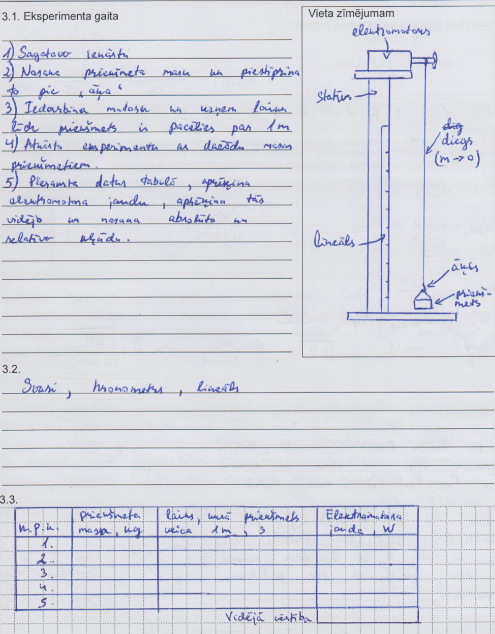 3.1. Eksperimenta gaita
1) Sagatavo iekārtu
2) Nosaka priekšmeta masu un piestiprina
to pie „āķa“
3) Iedarbina motoru un uzņem laiku
līdz priekšmets ir pacēlies par 1 m
4) Atkārto eksperimentu ar dažādu masu
priekšmetiem.
5) Pieraksta datus tabulā, aprēķina
elektromotora jaudu, aprēķina tās
vidējo un nosaka absolūto un
relatīvo kļūdu.
Vieta zīmējumam
elektromotors
statīvs
diegs
(m → 0)
lineāls
āķis
priekš-
mets
3.2.
Svari, hronometrs, lineāls
3.3.
n.p.k.
priekšmeta
masa, kg
laiks, kurā priekšmets
veica 1m, s
Elektromotora
jauda, W
1.
2.
3.
4.
5.
Vidējā vērtība